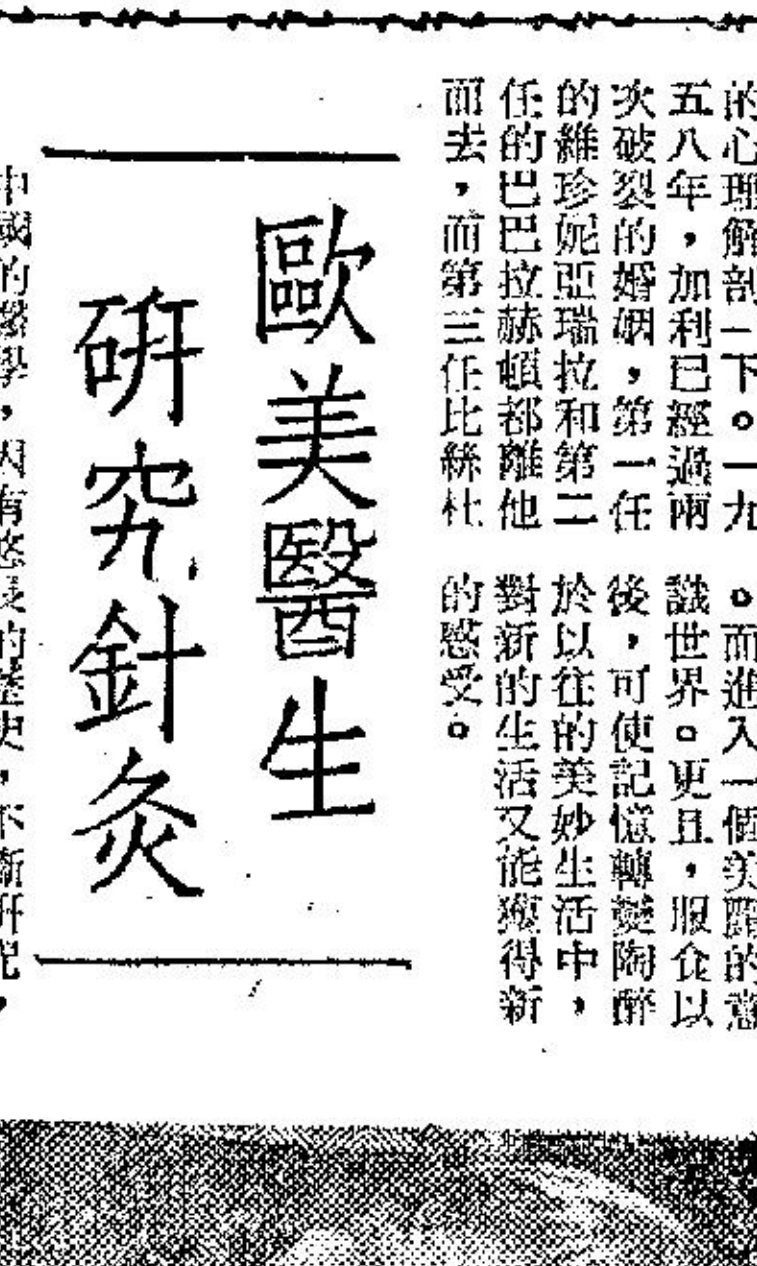 的心理解剖一下。一九
五八年，加利已經過兩
次破裂的婚姻，第一任
的維珍妮亞瑞拉和第二
任的巴巴拉赫頓都離他
而去，而第三任比絲杜
。而進入一個美麗的意
識世界。更且，服食以
後，可使記憶轉變陶醉
於以往的美妙生活中，
對新的生活又能獲得新
的感受。
歐美醫生
研究針灸
中國的醫學，因有悠長的歷史，不斷研究，